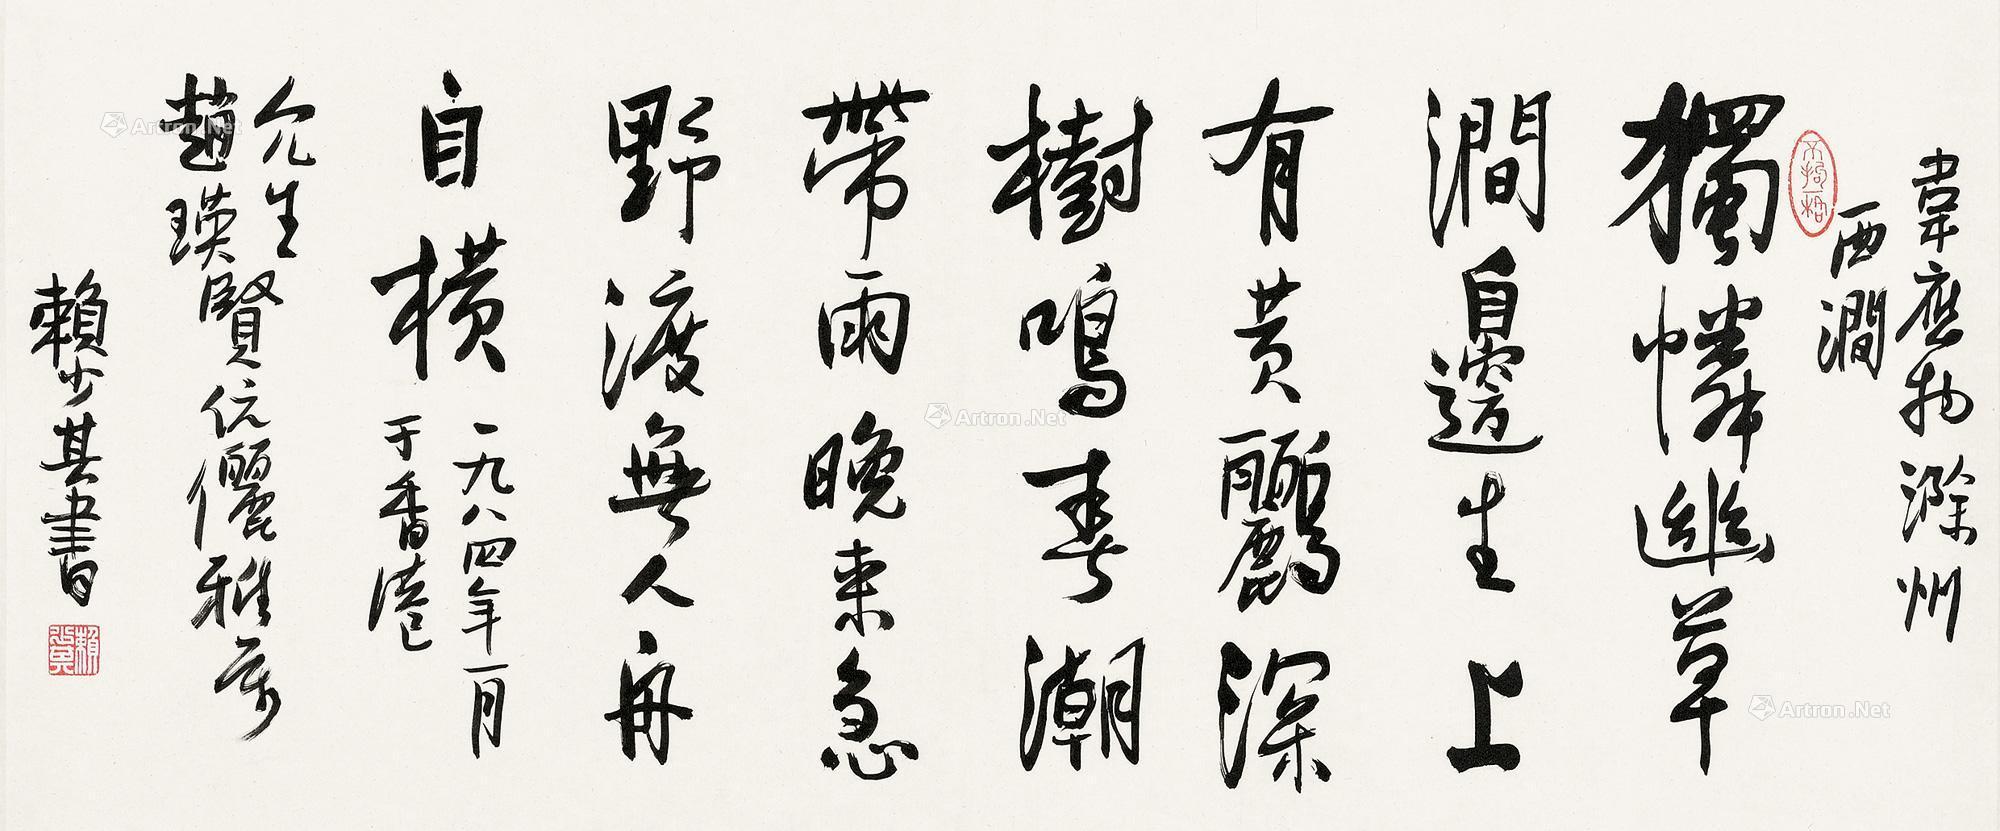 韋應物滁州
西澗
不拘一格
獨憐幽草
澗邊生上
有黄鸝深
樹鳴春潮
帶雨晚来急
野渡無人舟
自橫
一九八四年一月
于香港
允生
趙瑛賢伉儷雅屬
賴少其書
Artron.Net
Artron.Net
Artron.Net